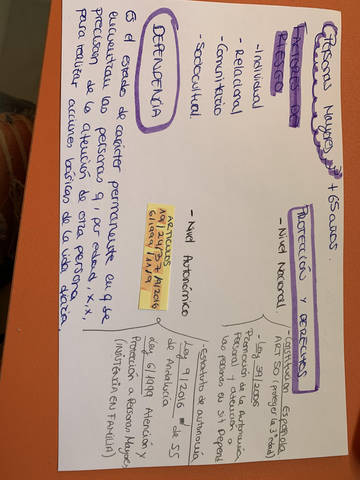 Personas Mayores → +65 años.
FACTORES DE
RIESGO
- Individual
- Relacional
- Comunitario
- Sociocultural
DEPENDENCIA
Es el estado de carácter permanente en q se
encuentran las personas q, por edad, x, x,
precisen de la atención de otra persona
para realizar acciones básicas de la vida diaria.
PROTECCIÓN Y DERECHOS
- Nivel Nacional
- Constitución Española
ART 50 (proteger la 3ª edad)
- Ley 39/2006
Promoción de la Autonomía
Personal y atención a
las personas en sit Depend
- Nivel Autonómico
ARTÍCULOS
19/24/37/
6/1999/11/9
- Estatuto de autonomía
Ley 9/2016 de SS
de Andalucía
Ley 6/1999 Atención y
Protección a Personas Mayores
(INSISTENCIA EN FAMILIA)